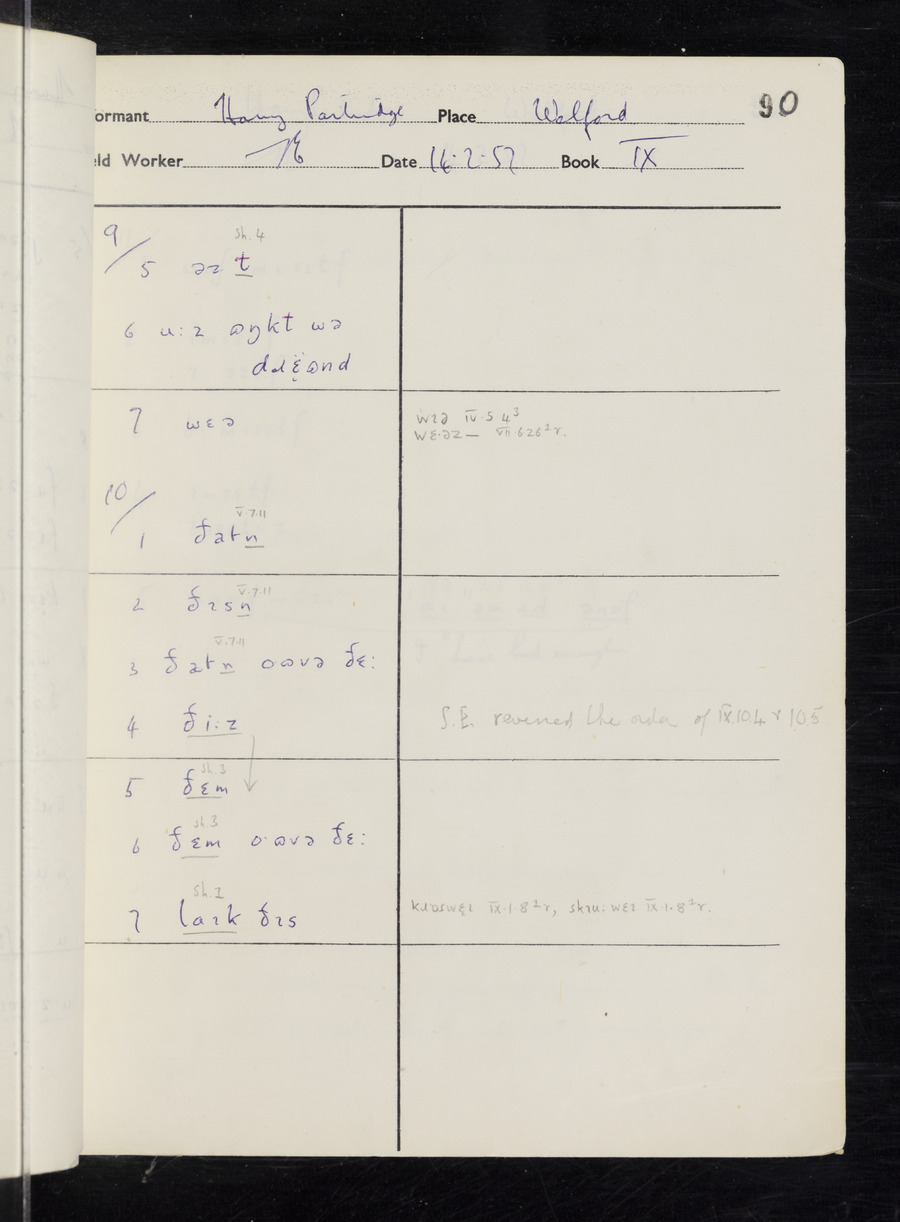 90
ormant Harry Partridge Place Walford
ld Worker Date 16·2·57 Book IX
9/
sh. 4
5 əz t
6 u:z ɷŋkt wə
7 wɛə
wɪə IV·5·4³
wɛ·əz— VII·6·26²r.
10/
V.7.11
1 ðatn
V.7.11
2 ðɪsn
V.7.11
3 ðatn oɷvə ðɛ:
4 ði:z
S.E. reversed the order of IX.10.4 & 10.5
sh. 3
5 ðɛm
sh 3
6 ðɛm oɷvə ðɛ:
sh. 2
7 laɪk ðɪs
IX·1·8²r, skɹu:wɛɪ IX·1·8²r.